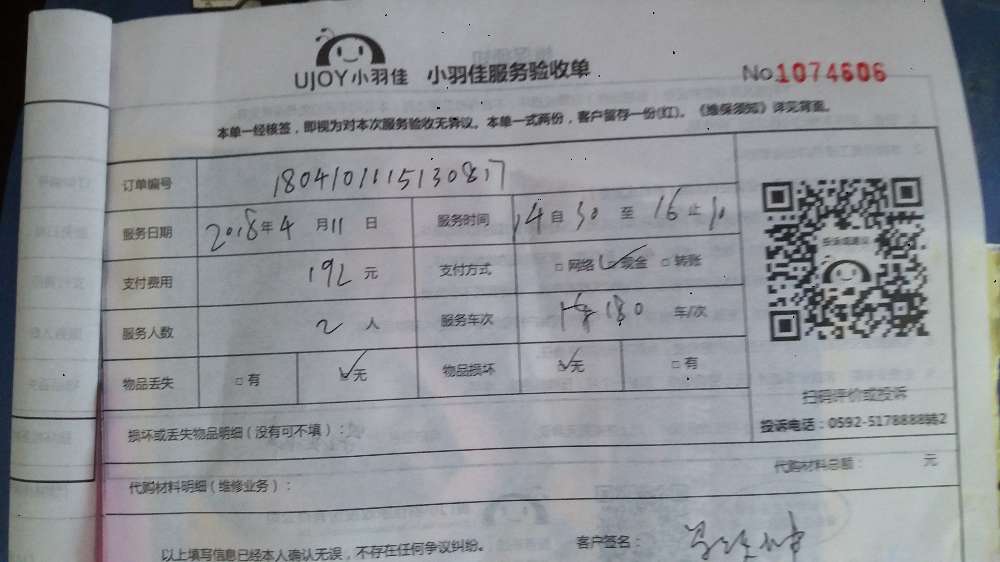 UJOY小羽佳 小羽佳服务验收单 No.1074606
本单一经核签，即视为对本次服务验收无异议。本单一式两份，客户留存一份(红)。《维保须知》详见背面。
订单编号 180410111513087
服务日期 2018年4月11日 服务时间 14自30至16止10
支付费用 192元 支付方式 □网络 ☑现金 □转账
服务人数 2人 服务车次 180 车/次
物品丢失 □有 ☑无 物品损坏 ☑无 □有
扫码评价或投诉
投诉电话：0592-5178888转2
损坏或丢失物品明细（没有可不填）：
代购材料总额： 元
代购材料明细（维修业务）：
以上填写信息已经本人确认无误，不存在任何争议纠纷。 客户签名：